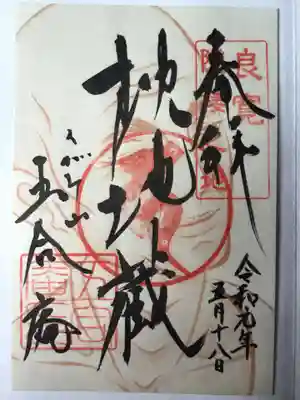 奉拝
良寛
枕地蔵
くがみ山
五合庵
令和元年
五月十八日